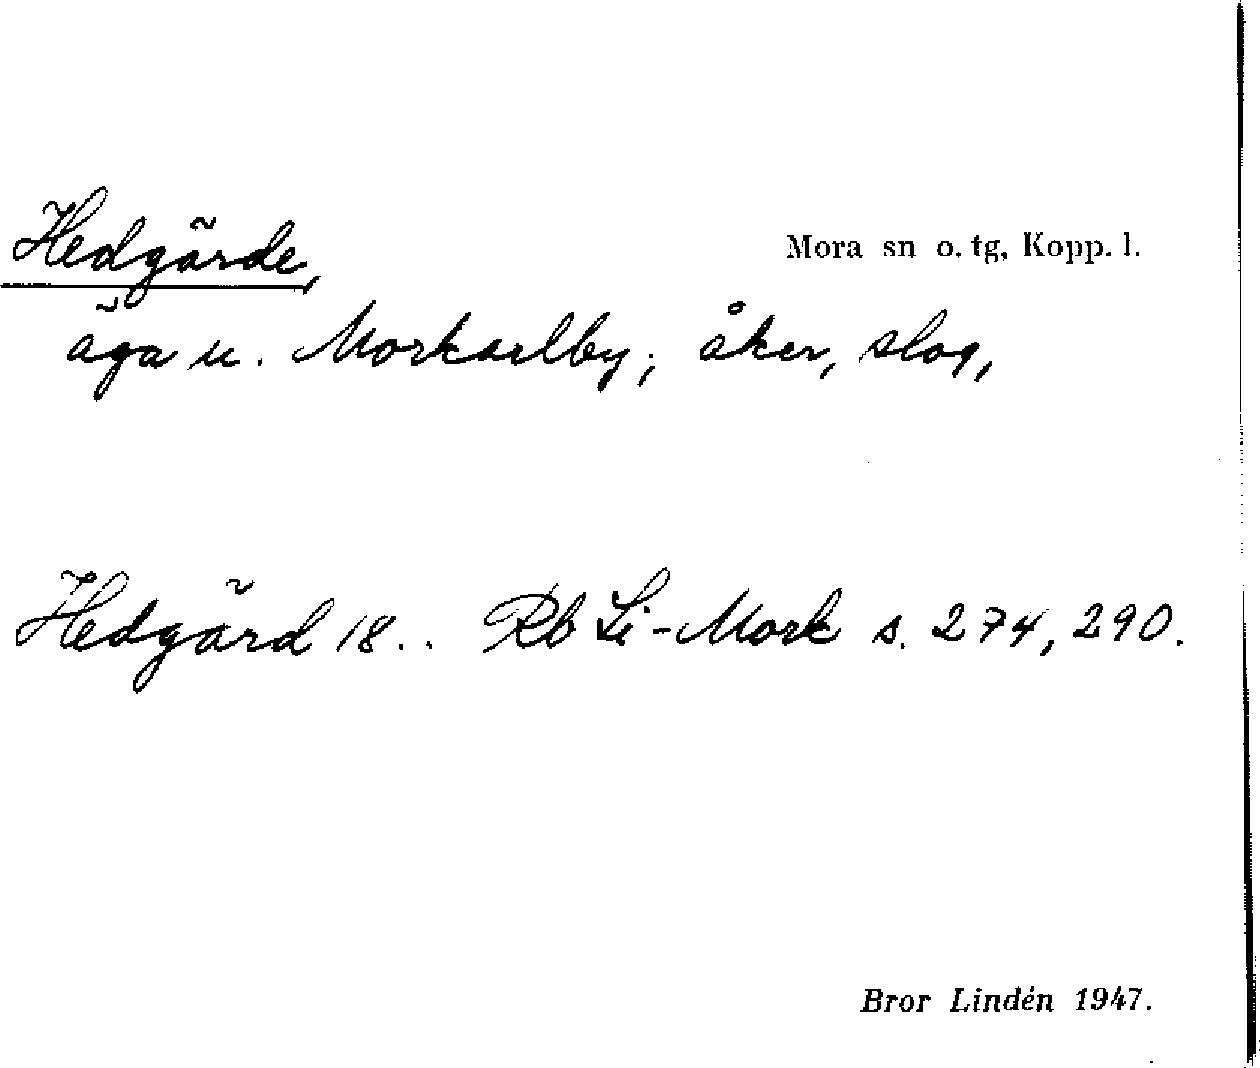 Hedgärde,
Mora sn o. tg, Kopp. l.
äga u. Morkarlby; åker, slog,
Hedgärd 18.. Rb Li-Mork s. 274, 290.
Bror Lindén 1947.